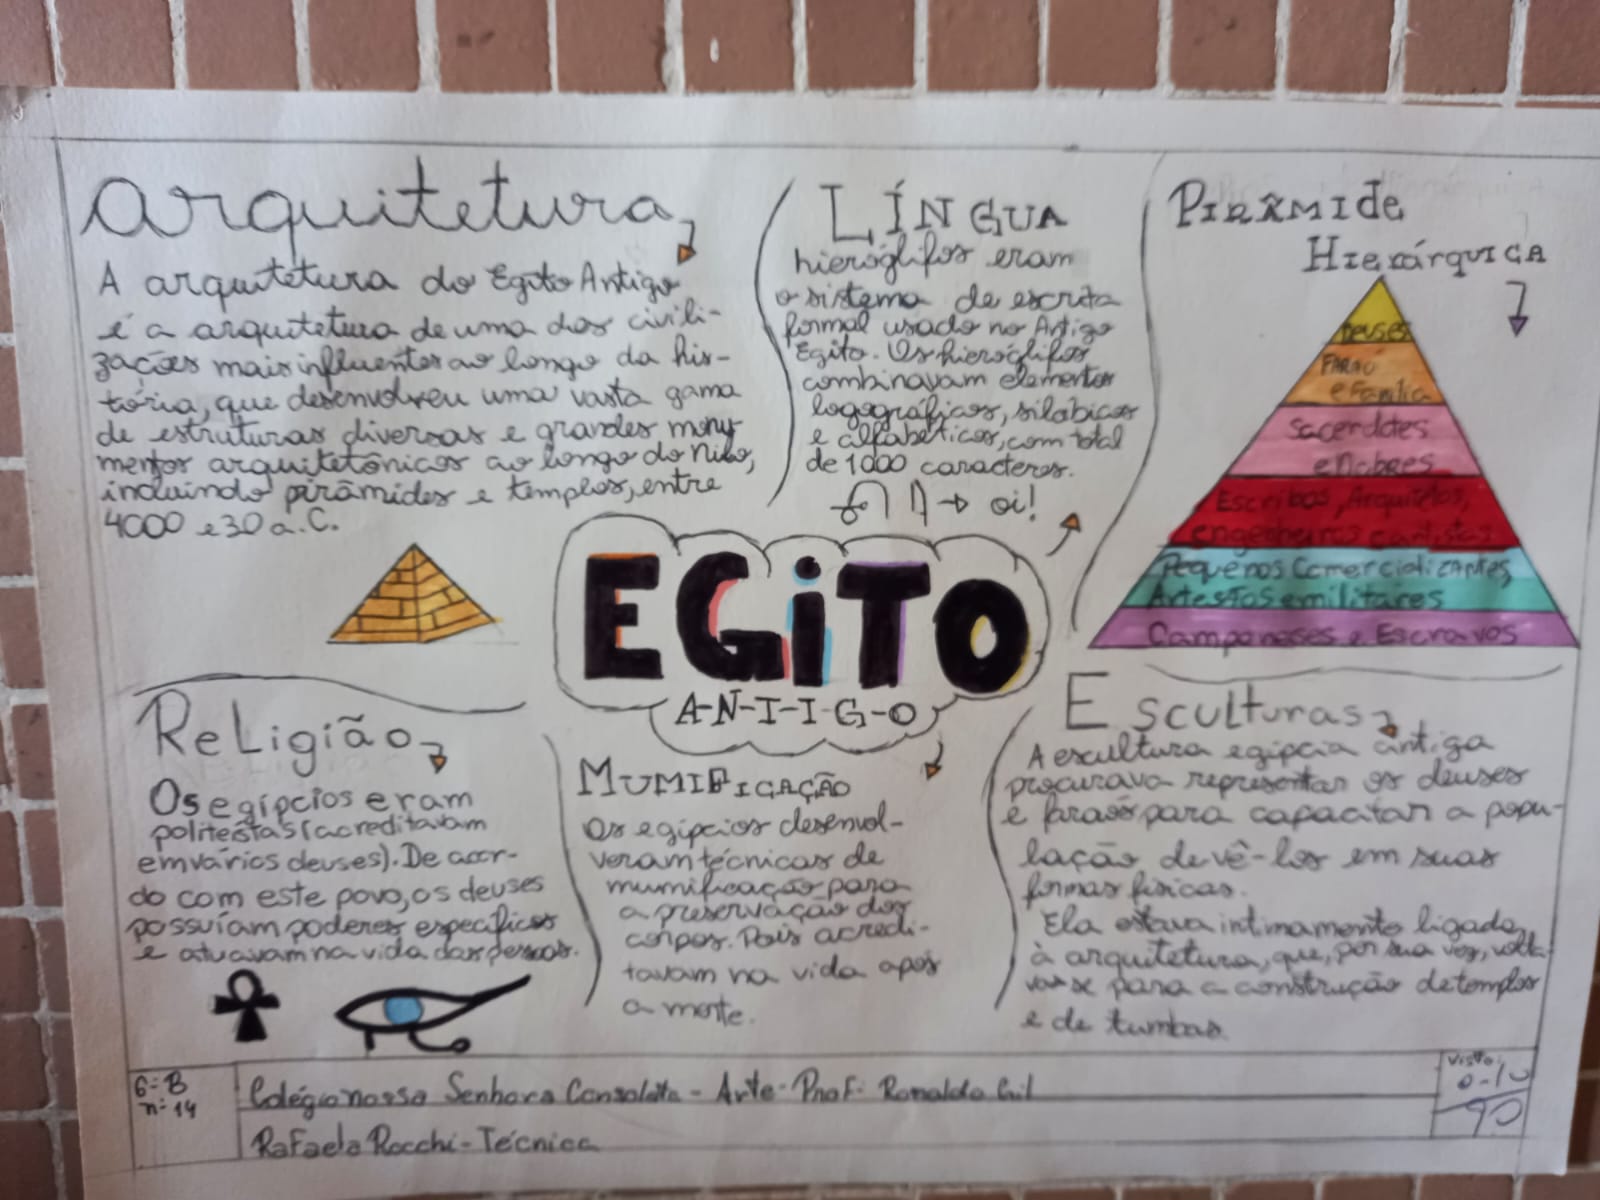 arquitetura
A arquitetura do Egito Antigo
é a arquitetura de uma das civili-
zações mais influentes ao longo da his-
tória, que desenvolveu uma vasta gama
de estruturas diversas e grandes monu
mentos arquitetônicos ao longo do nilo,
incluindo pirâmides e templos, entre
4000 e 30 a.C.
LÍNGUA
hieróglifos eram
o sistema de escrita
formal usado no Antigo
Egito. Os hieróglifos
combinavam elementos
logográficos, silábicos
e alfabéticos, com total
de 1000 caracteres.
→ oi!
PIRÂMIDE
HIERÁRQUICA
Deuses
FARAÓ
e Família
Sacerdotes
e Nobres
Escribas, Arquitetos,
engenheiros e artistas
Pequenos Comercializantes,
Artesãos e militares
Camponeses e Escravos
EGiTO
A-N-T-I-G-O
ReLigião
Os egípcios eram
politeístas (acreditavam
em vários deuses). De acor-
do com este povo, os deuses
possuíam poderes específicos
e atuavam na vida das pessoas.
MUMIFICAÇÃO
Os egípcios desenvol-
veram técnicas de
mumificação para
a preservação dos
corpos. Pois acredi-
tavam na vida após
a morte.
Esculturas
A escultura egípcia antiga
procurava representar os deuses
e faraós para capacitar a popu-
lação de vê-los em suas
formas físicas.
Ela estava intimamente ligada
à arquitetura, que, por sua vez, volta
va-se para a construção de templos
e de tumbas.
6º B
nº 14
Colégio nossa Senhora Consolata - Arte - Prof: Ronaldo Gil
Rafaela Rocchi - Técnica
Visto:
0-10